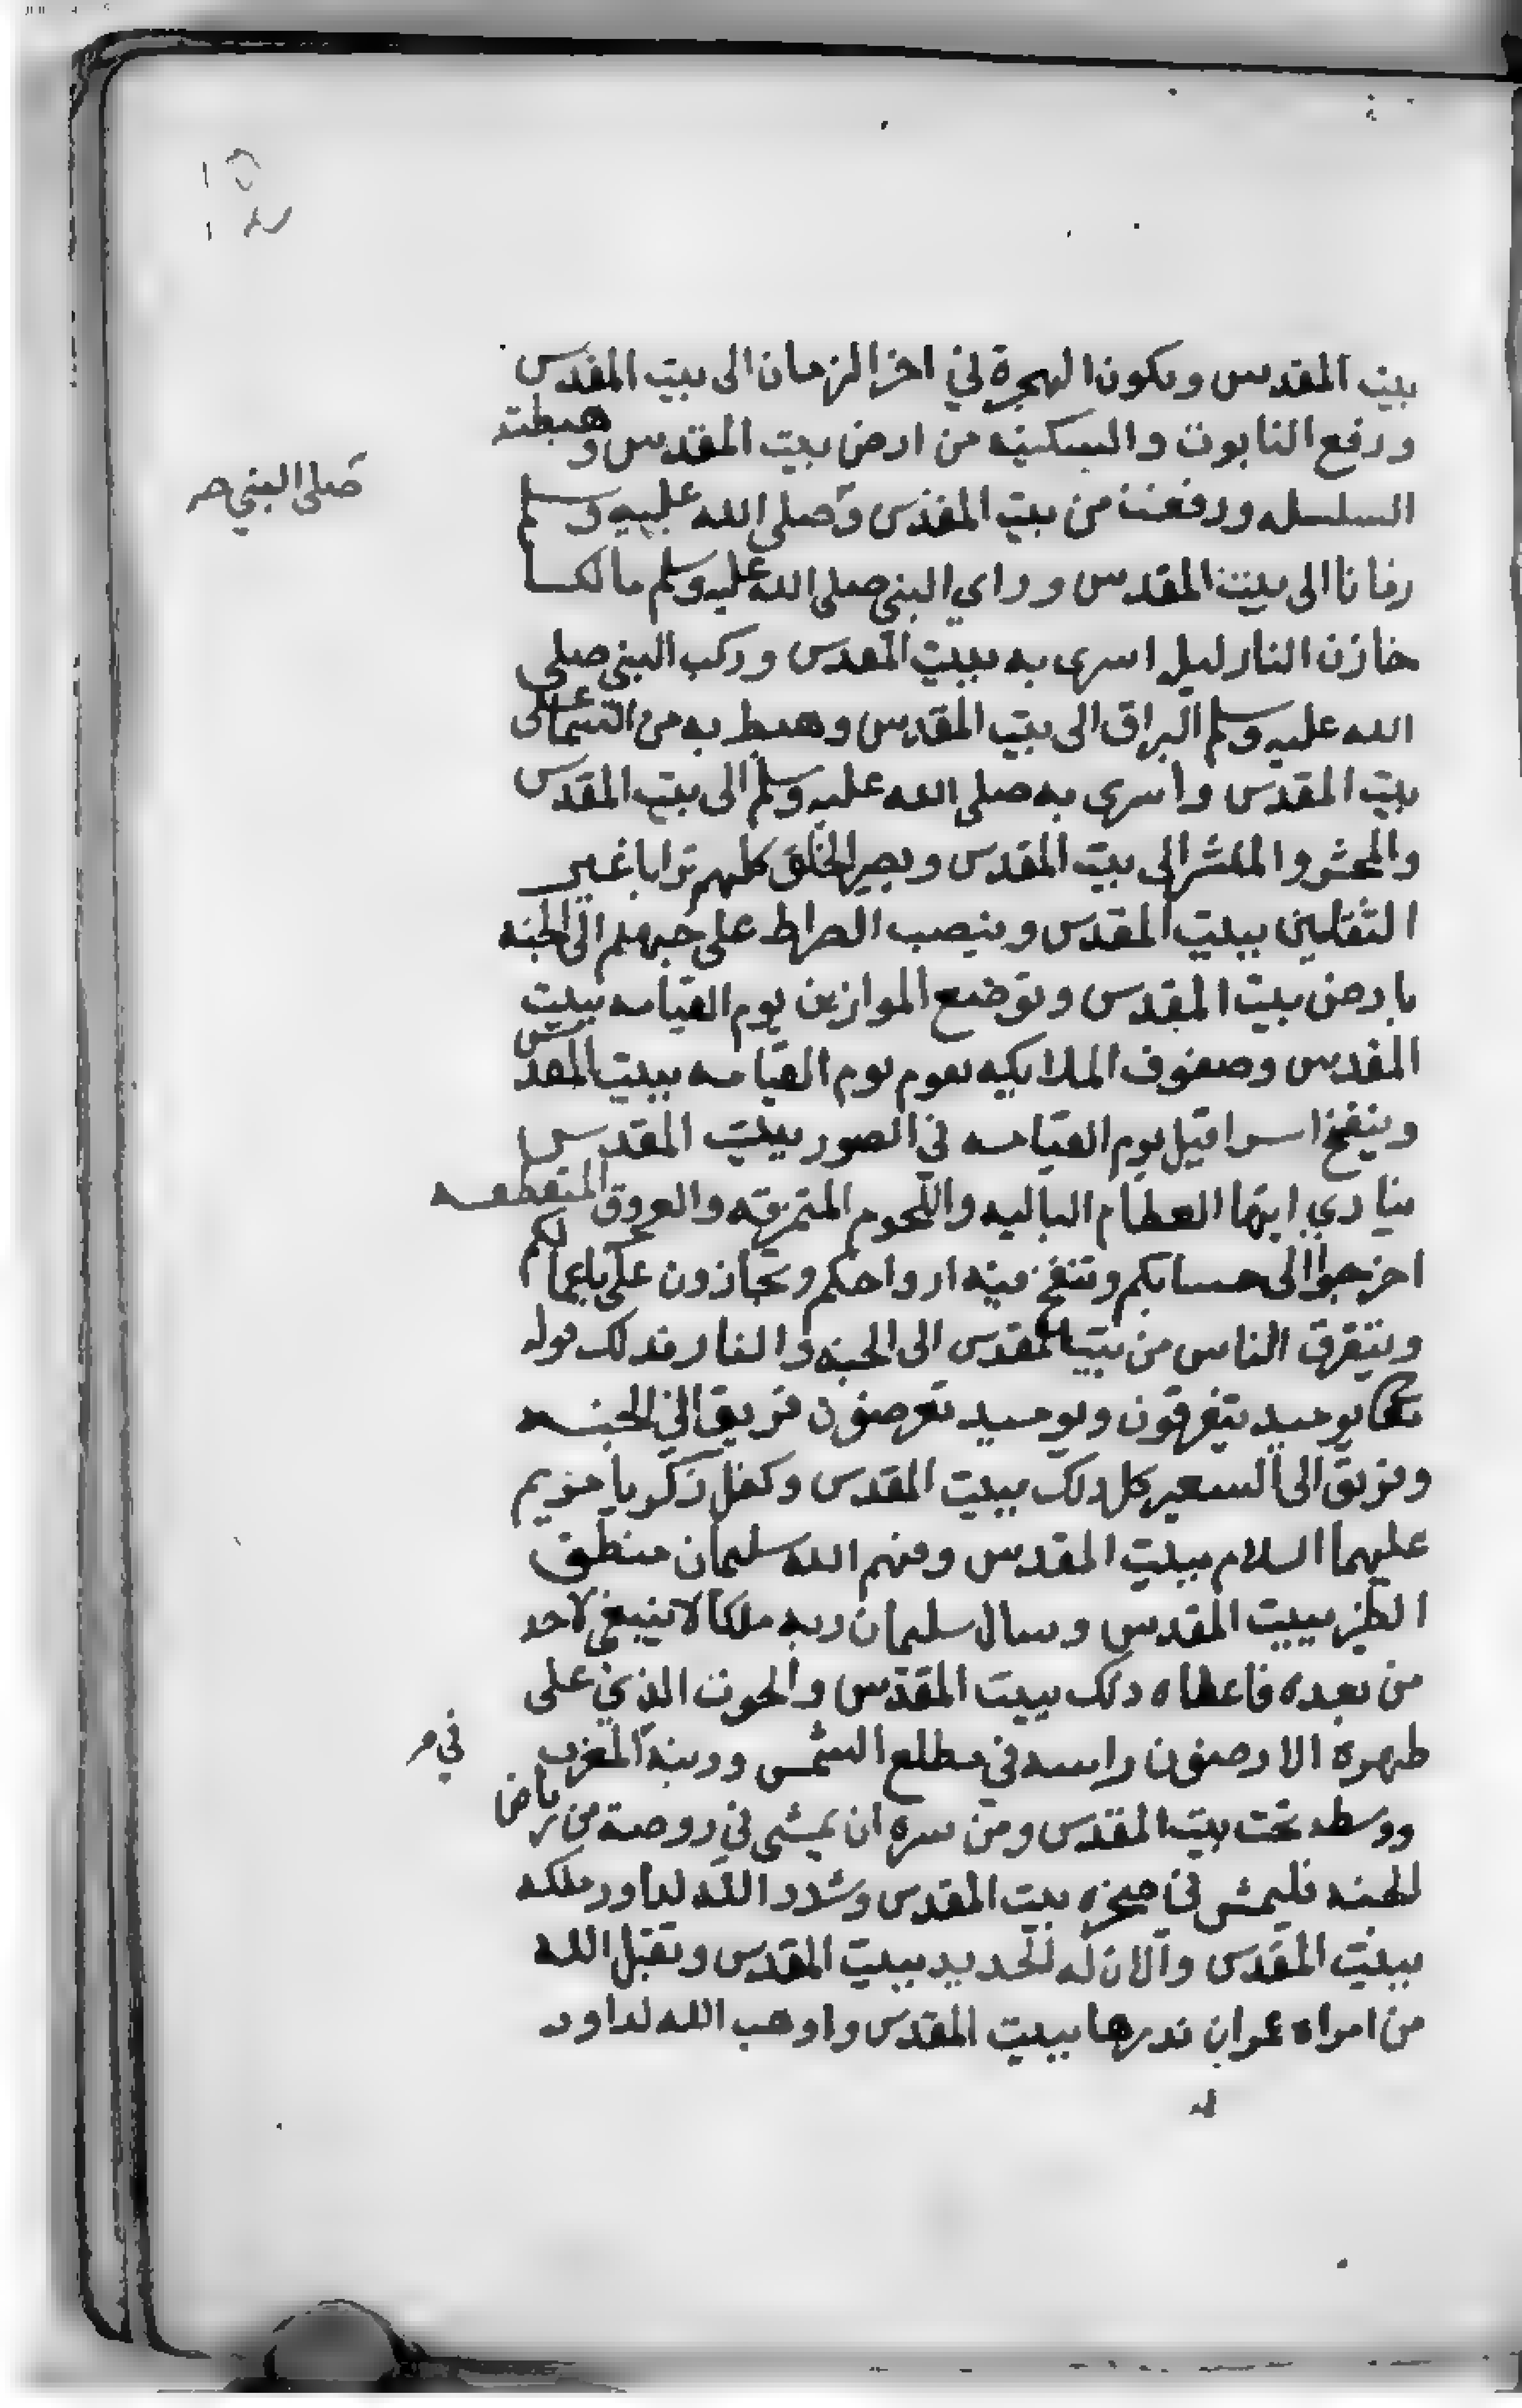 بيت المقدس ويكون الهجرة في اخر الزمان الى بيت المقدس
ورفع التابوت والسكينه من ارض بيت المقدس وهبطت
السلسله ورفعت من بيت المقدس وصلى الله عليه وسلم
صلى النبي صـ
زمانا الى بيت المقدس وراي النبي صلى الله عليه وسلم مالكا
خازن النار ليل اسرى به ببيت المقدس وركب النبي صلى
الله عليه وسلم البراق الى بيت المقدس وهبط به من السما الى
بيت المقدس واسرى به صلى الله عليه وسلم الى بيت المقدس
والمحشر والمنشر الى بيت المقدس ويصير الخلق كلهم ترابا غير
الثقلين ببيت المقدس وينصب الصراط على جهنم الى الجنه
بارض بيت المقدس وتوضع الموازين يوم القيامه ببيت
المقدس وصفوف الملايكه تقوم يوم القيامه ببيت المقدس
وينفخ اسرافيل يوم القيامه في الصور ببيت المقدس
ينادي ايتها العظام الباليه واللحوم المتمزقه والعروق المتقطعه
اخرجوا الى حسابكم وتنفخ فيه ارواحكم وتجازون على باعمالكم
ويتفرق الناس من بيت المقدس الى الجنه والنار فذلك قوله
تعالى يوميد يتفرقون ويوميد تعرضون فريق في الجنه
وفريق الى السعير كل ذلك ببيت المقدس وكفل زكريا مريم
عليهما السلام ببيت المقدس وفهم الله سليمان منطق
الطير ببيت المقدس وسال سليمان ربه ملكا لا ينبغي لاحد
من بعده فاعطاه ذلك ببيت المقدس والحوت الذي على
ظهره الارضون راسه في مطلع الشمس وذنبه المغرب
في مـ
ووسطه تحت بيت المقدس ومن سره ان يمشي في روضة من رياض
الجنه فليمش في صخرة بيت المقدس وشدد الله لداود ملكه
ببيت المقدس والان له الحديد ببيت المقدس وتقبل الله
من امراه عمران نذرها ببيت المقدس واوهب الله لداود
له